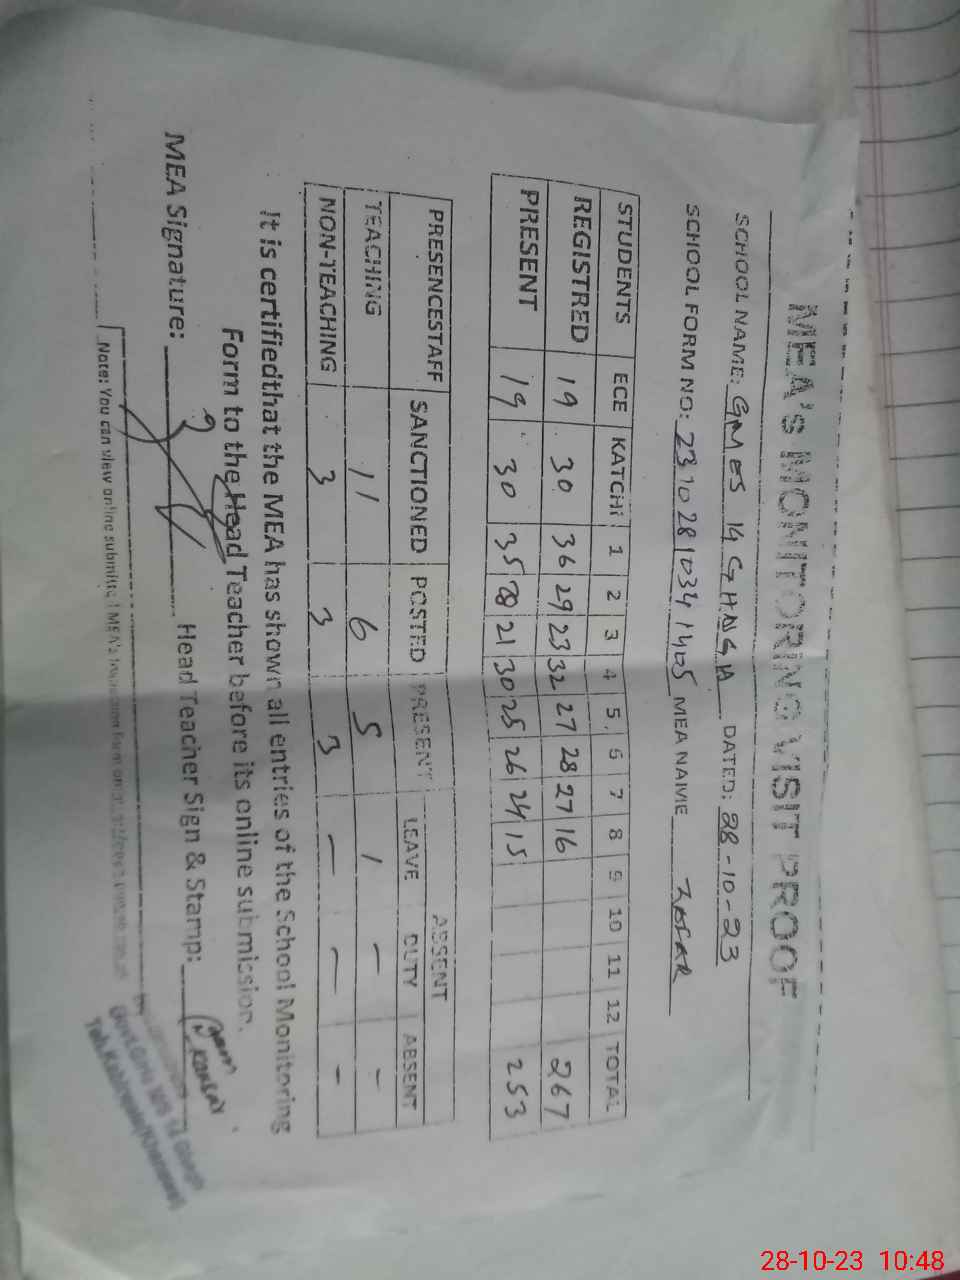 MEA'S MONITORING VISIT PROOF
SCHOOL NAME: GMES 14 GHAGHA DATED: 28-10-23
SCHOOL FORM NO: 23102810341405 MEA NAME ZAFAR
STUDENTS ECE KATCHI 1 2 3 4 5 6 7 8 9 10 11 12 TOTAL
REGISTRED 19 30 36 29 23 32 27 28 27 16 267
PRESENT 19 30 35 28 21 30 25 26 24 15 253
PRESENCESTAFF SANCTIONED POSTED PRESENT ABSENT
LEAVE DUTY ABSENT
TEACHING 11 6 5 1 - -
NON-TEACHING 3 3 3 - - -
It is certifiedthat the MEA has shown all entries of the School Monitoring
Form to the Head Teacher before its online submission.
MEA Signature: Head Teacher Sign & Stamp:
Note: You can view online submitted MEA's Inspection form on
28-10-23 10:48